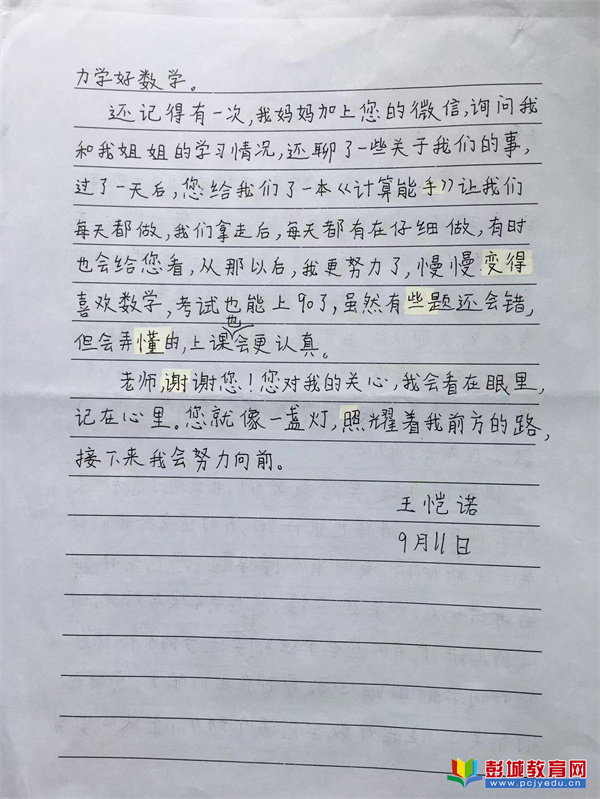 力学好数学。
还记得有一次,我妈妈加上您的微信,询问我
和我姐姐的学习情况,还聊了一些关于我们的事,
过了一天后,您给我们了一本《计算能手》让我们
每天都做,我们拿走后,每天都有在仔细做,有时
也会给您看,从那以后,我更努力了,慢慢变得
喜欢数学,考试也能上90了,虽然有些题还会错,
但会弄懂的,上课也会更认真。
老师,谢谢您!您对我的关心,我会看在眼里,
记在心里。您就像一盏灯,照耀着我前方的路,
接下来我会努力向前。
王恺诺
9月11日
彭城教育网
www.pcjyedu.cn